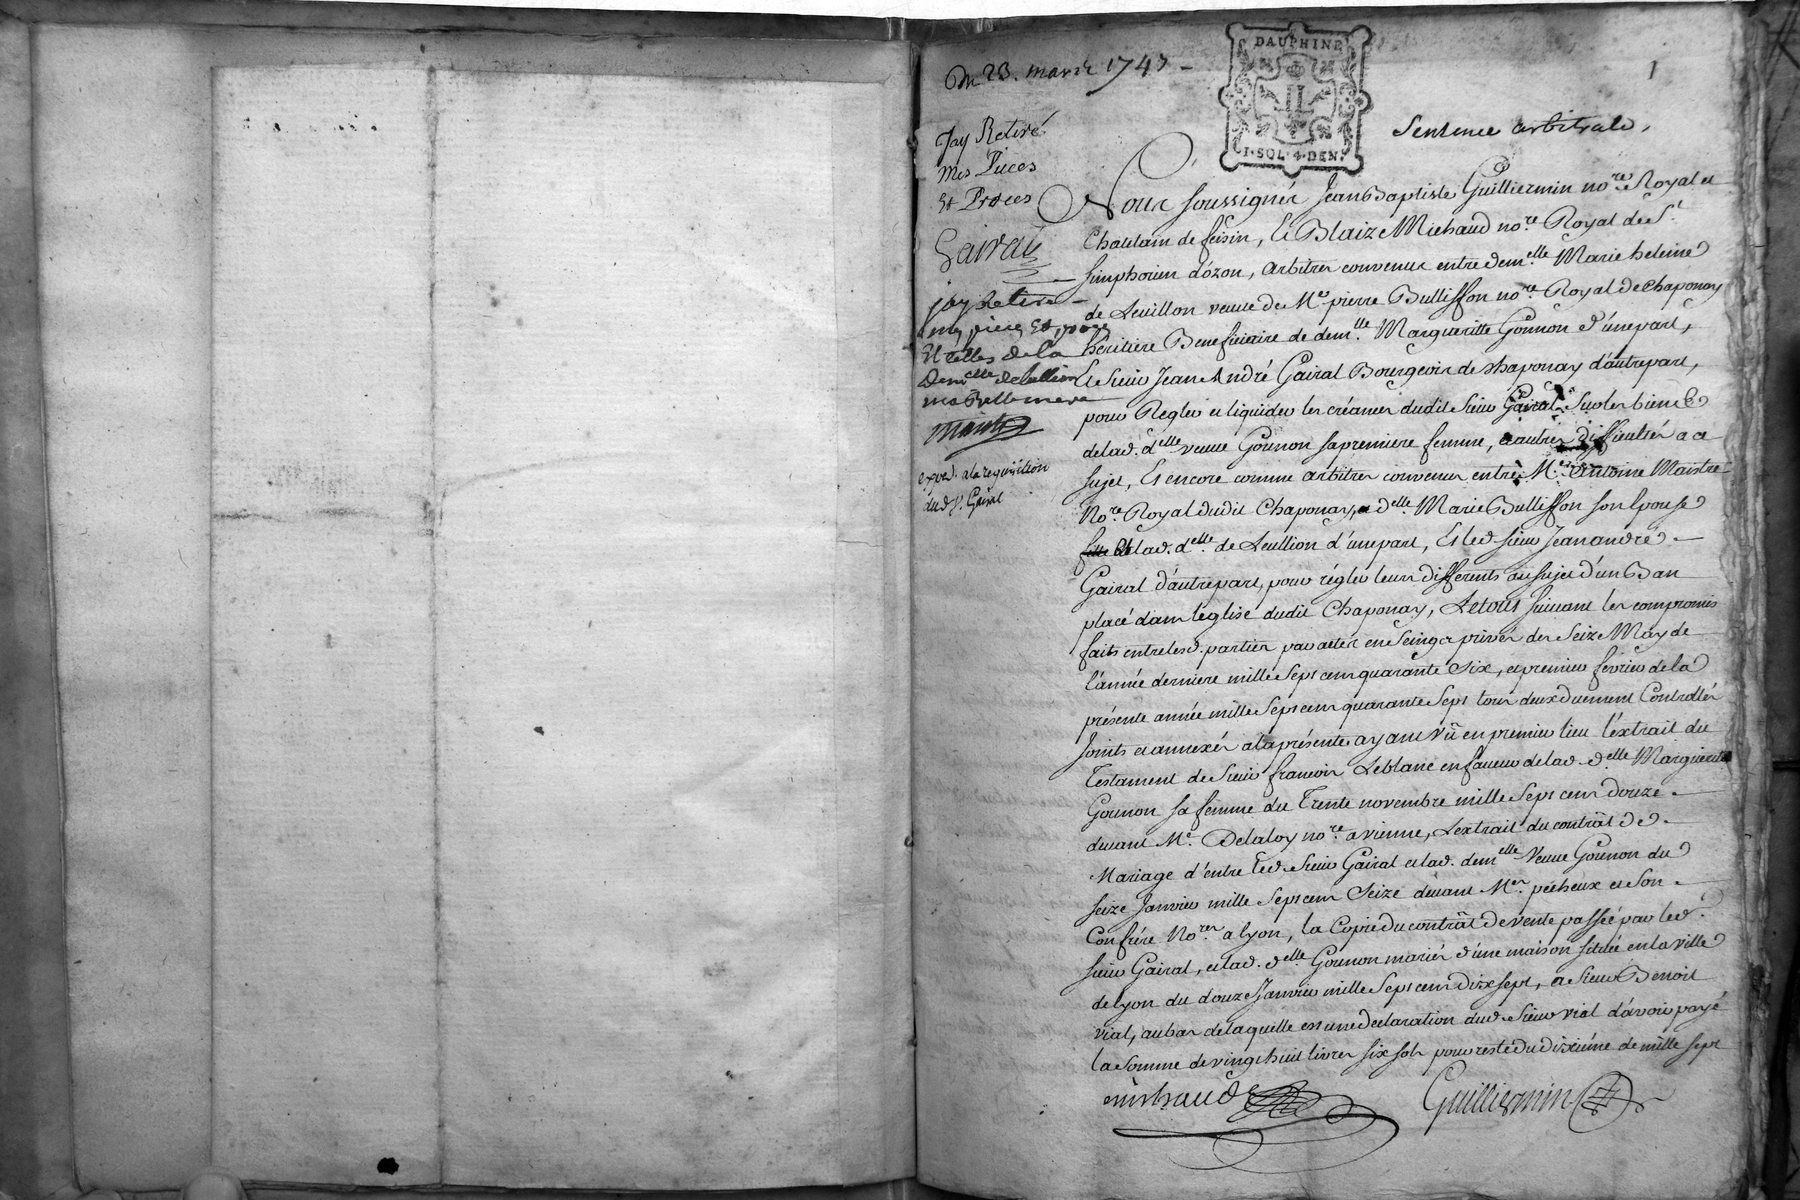 Du 23. mars 1747
DAUPHINE
I·SOL·4·DEN·
1
Sentence arbitrale,
Jay Retiré
mes Pieces
Et Proces
Gairal
jay Retiré
mes pieces Et
Et celles de la
Demlle
ma Belle mere
exped. a la requisition
dud. Sr. Gairal
Nous soussignés Jean Baptiste Guilliermin nore. Royal et
Chatelain de feisin, Et Blaize Michaud nore. Royal de St.
simphorien d'ozon, Arbitres convenus entre demelle Marie heleine
de Leuillon veuve de Me pierre Bullisson nore. Royal de chaponay
héritiere Beneficiaire de demlle. Marguerite Gounon d'une part,
Et Sieur Jean André Gairal Bourgeois de chaponay d'autre part,
pour Regler et liquider les créances dudit Sieur Gairal Sur les biens
de lad. delle veuve Gounon sa premiere femme, et autres difficultés a ce
sujet, Et encore comme arbitres convenus entre Me. Antoine Maistre
Nore. Royal dudit Chaponay, et delle. Marie Bullisson son Epouse
Et lad. delle. de Leullion d'une part, Et led. sieur Jean andré
Gairal d'autre part, pour régler leurs differents au sujet d'un Ban
placé dans l'eglise dudit Chaponay, Le tout suivant les compromis
faits entre lesd. parties par actes en Seing privés des Seize May de
l'année derniere mille Sept cent quarante Six, et premier fevrier de la
présente année mille Sept cent quarante Sept tous deux duement Controllés
Joints et annexés a la présente ayant vû en premier lieu l'extrait du
Testament de Sieur francois Leblanc en faveur de lad. delle Marguerite
Gounon sa femme du Trente novembre mille Sept cent douze
devant Me. Delaloy nore. a vienne, L'extrait du contrât de
Mariage d'entre led. Sieur Gairal et lad. demelle Veuve Gounon du
seize Janvier mille Sept cent Seize devant Mes. pérheux et Son
Confrére Nores a lyon, la Copie du contrât de vente passée par led.
sieur Gairal, et lad. delle Gounon mariés d'une maison sitüée en la ville
de lyon du douze Janvier mille Sept cent Dix sept, a Sieur Benoit
vial, au bas de laquelle est une declaration dud. Sieur vial d'avoir payé
la Somme de vingt huit livres six sols pour reste du dixiéme de mille sept
Michaud
Guilliermin